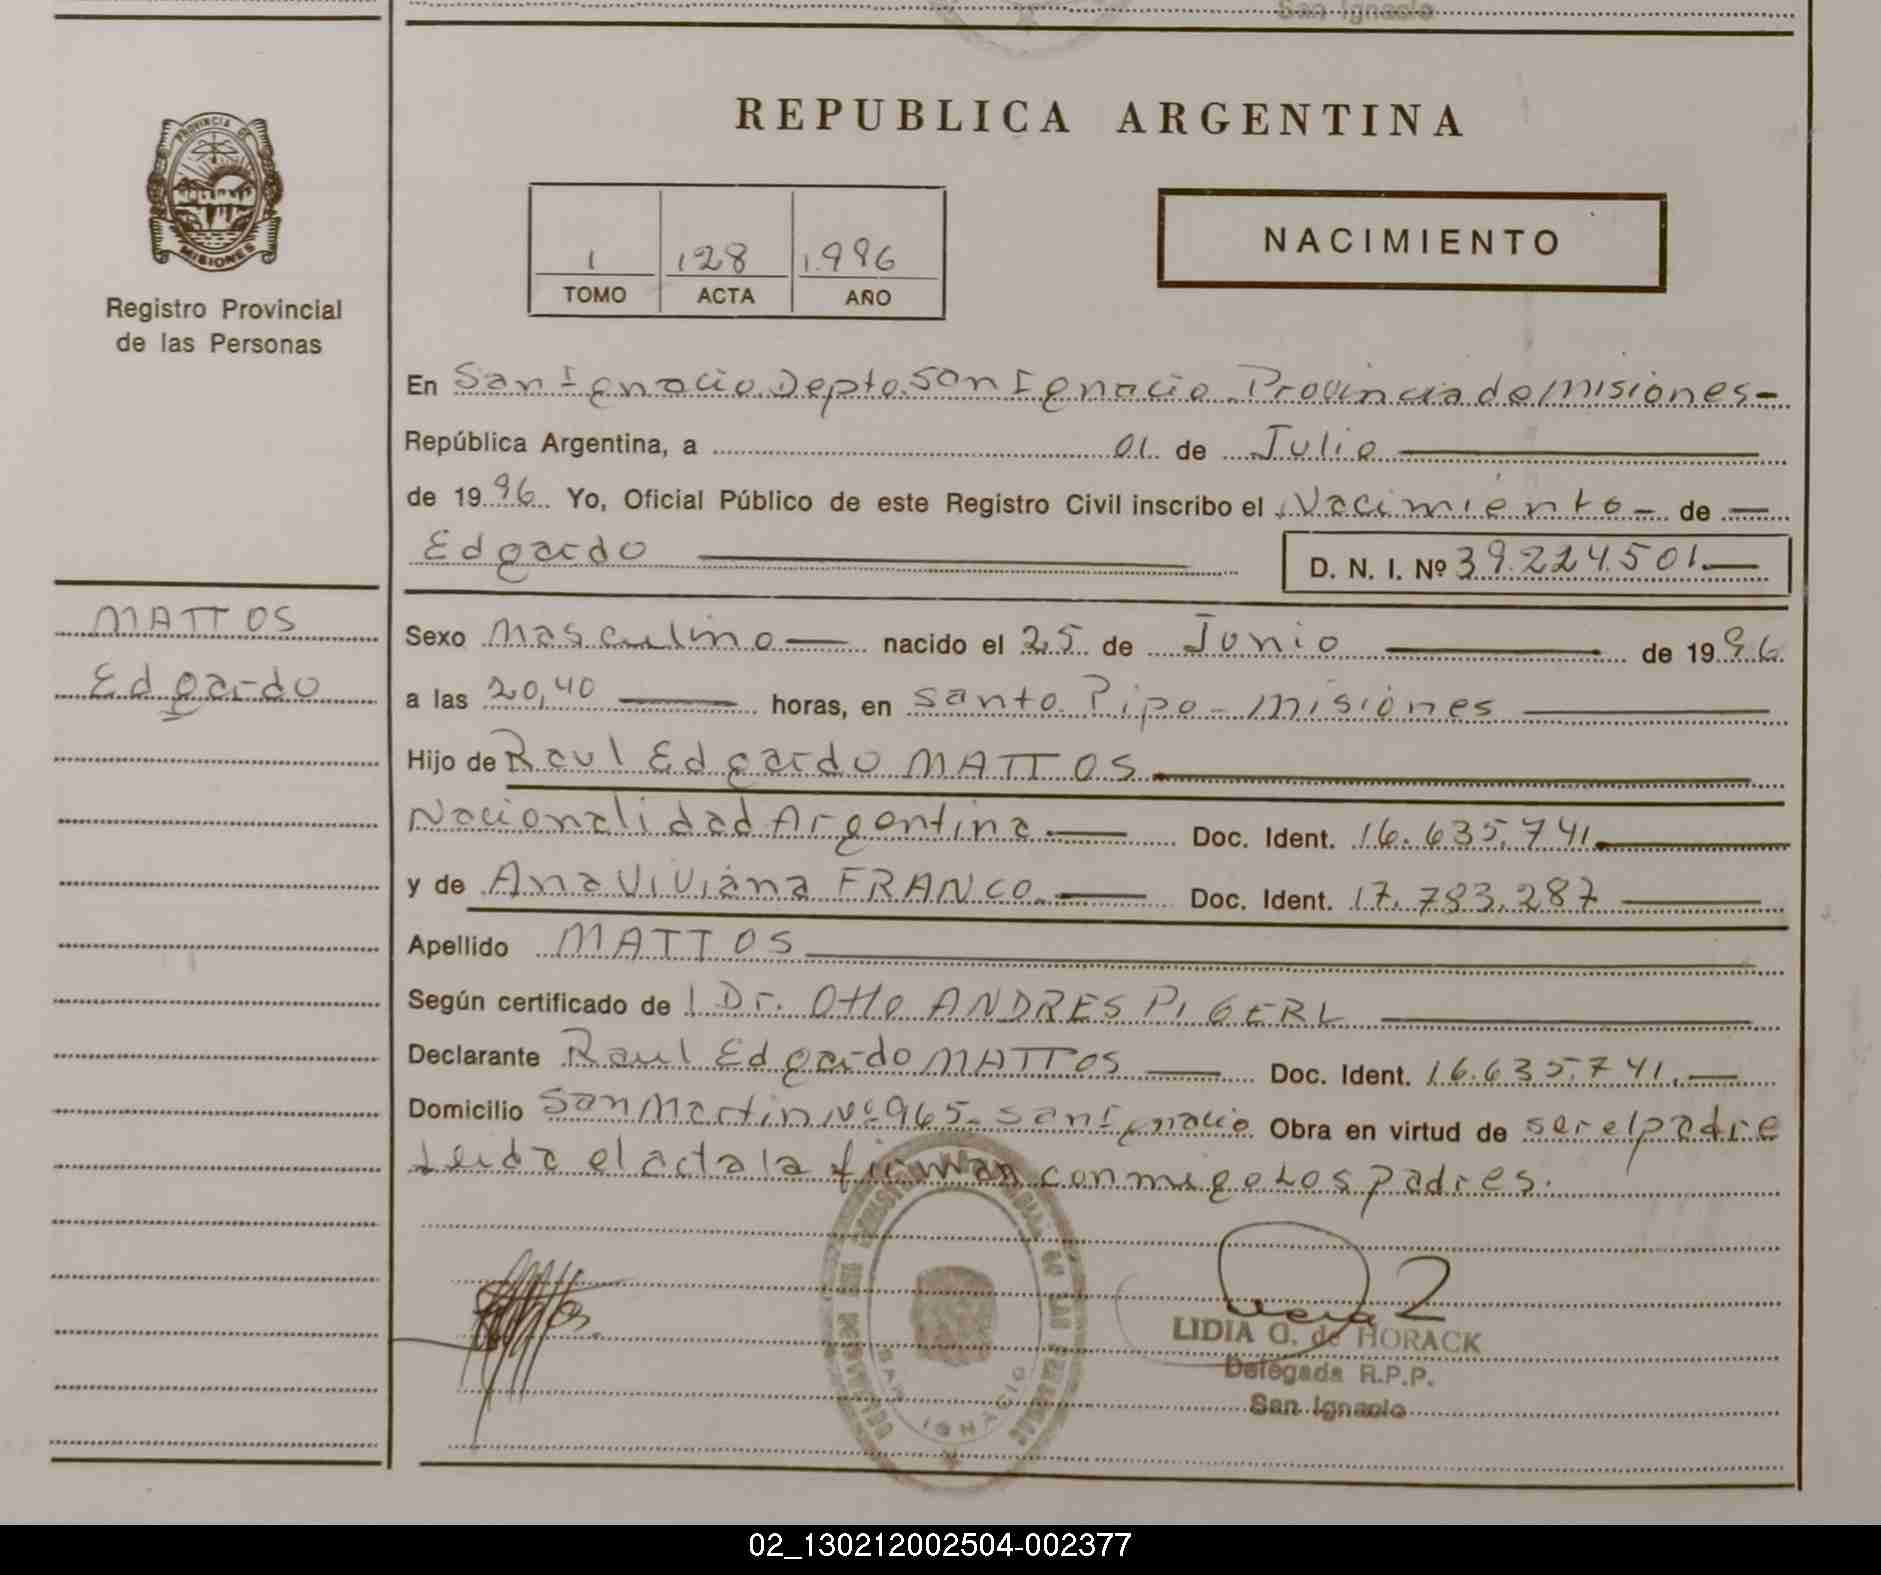 San Ignacio
REPUBLICA ARGENTINA
PROVINCIA DE
MISIONES
Registro Provincial
de las Personas
1 128 1.996
TOMO ACTA AÑO
NACIMIENTO
En San Ignacio Depto. San Ignacio Provincia de Misiones-
República Argentina, a 01 de Julio
de 1996 Yo, Oficial Público de este Registro Civil inscribo el Nacimiento - de
Edgardo D. N. I. Nº 39.224.501
MATTOS
Edgardo
Sexo Masculino nacido el 25 de Junio de 1996
a las 20,40 horas, en Santo Pipo - Misiones
Hijo de Raul Edgardo MATTOS
Nacionalidad Argentina Doc. Ident. 16.635.741
y de Ana Viviana FRANCO Doc. Ident. 17.783.287
Apellido MATTOS
Según certificado de l Dr. Otto ANDRES PIGERL
Declarante Raul Edgardo MATTOS Doc. Ident. 16.635.741.
Domicilio San Martin Nº 965- San Ignacio Obra en virtud de ser el padre
Leida el acta la firman conmigo Los padres.
LIDIA G. de HORACK
Delegada R.P.P.
San Ignacio
SAN IGNACIO
02_130212002504-002377